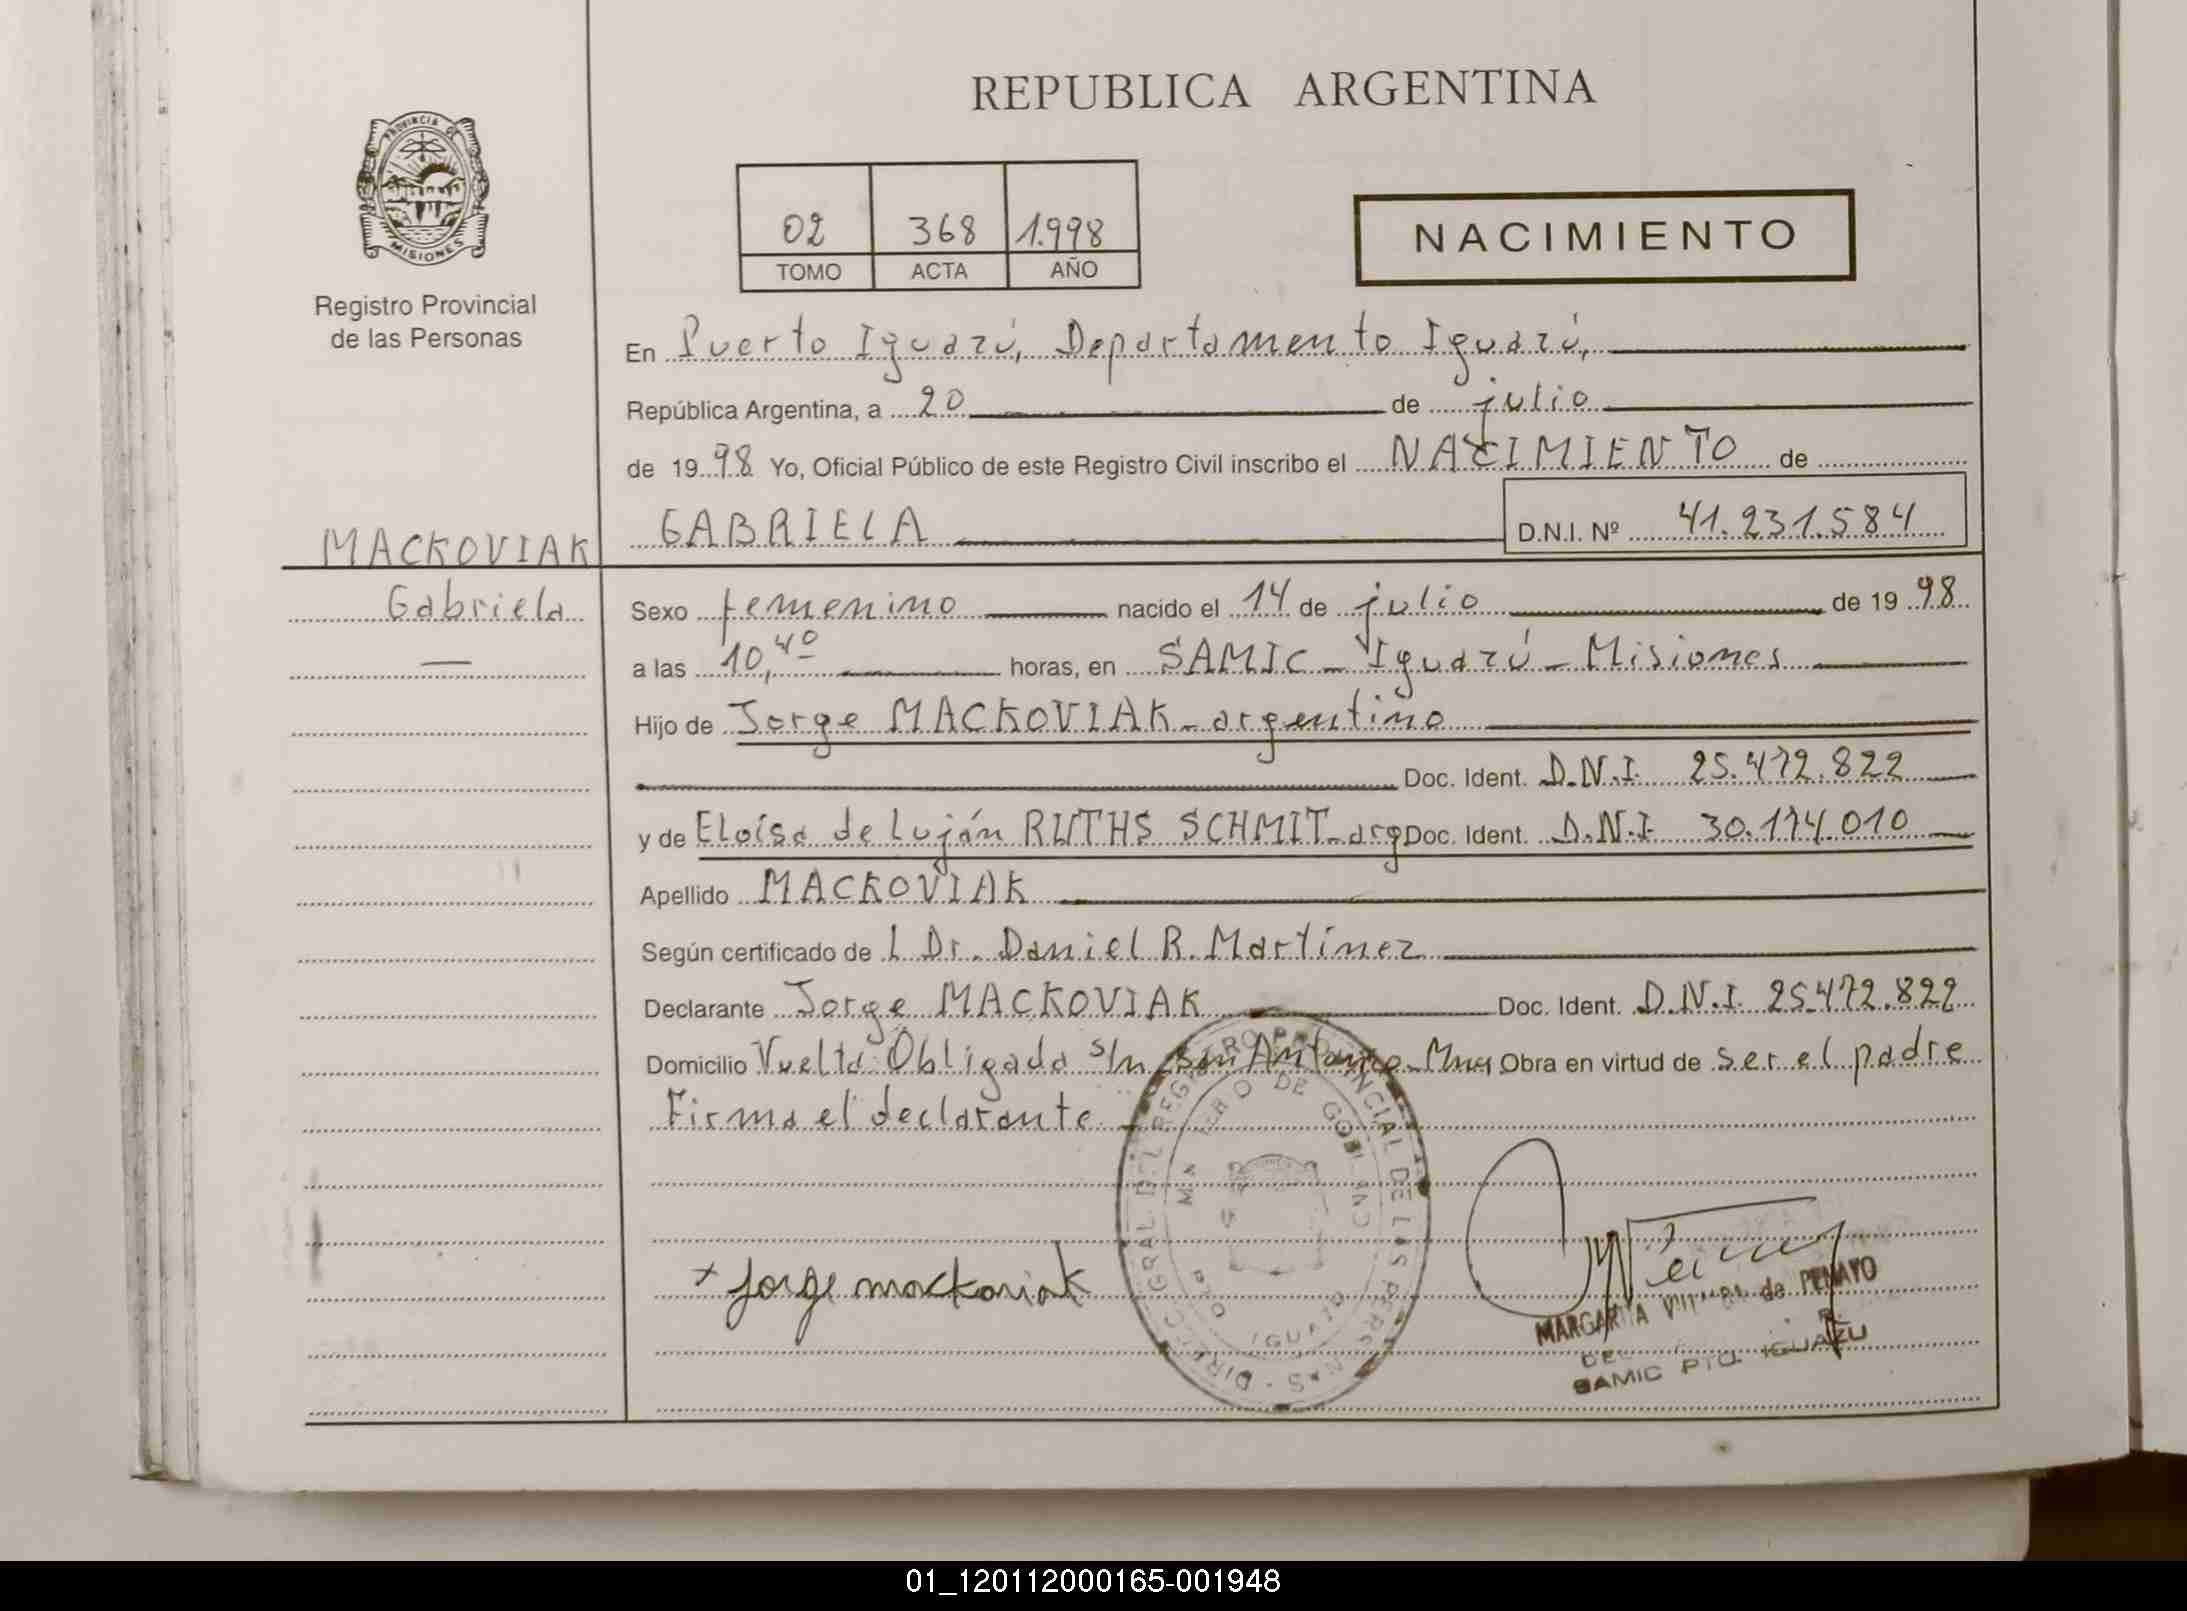 REPUBLICA ARGENTINA
PROVINCIA DE MISIONES
Registro Provincial
de las Personas
02 368 1.998
TOMO ACTA AÑO
NACIMIENTO
En Puerto Iguazú, Departamento Iguazú,
República Argentina, a 20 de julio
de 1998 Yo, Oficial Público de este Registro Civil inscribo el NACIMIENTO de
GABRIELA D.N.I. Nº 41.231.584
MACKOVIAK
Gabriela
Sexo femenino nacido el 14 de julio de 1998
a las 10,40 horas, en SAMIC - Iguazú - Misiones
Hijo de Jorge MACKOVIAK - argentino
Doc. Ident. D.N.I. 25.472.822
y de Eloísa de Luján RUTHS SCHMIT - arg Doc. Ident. D.N.I. 30.174.010
Apellido MACKOVIAK
Según certificado de L Dr. Daniel R. Martínez
Declarante Jorge MACKOVIAK Doc. Ident. D.N.I. 25.472.822
Domicilio Vuelta Obligado s/n San Antonio - Mnes Obra en virtud de ser el padre
Firma el declarante
DIRECC. GRAL. DEL REGISTRO PROVINCIAL DE LAS PERSONAS
DE GOBIERNO
IGUAZU
x Jorge mackoviak
MARGARITA de PENAYO
DEL
SAMIC PTO. IGUAZU
01_120112000165-001948